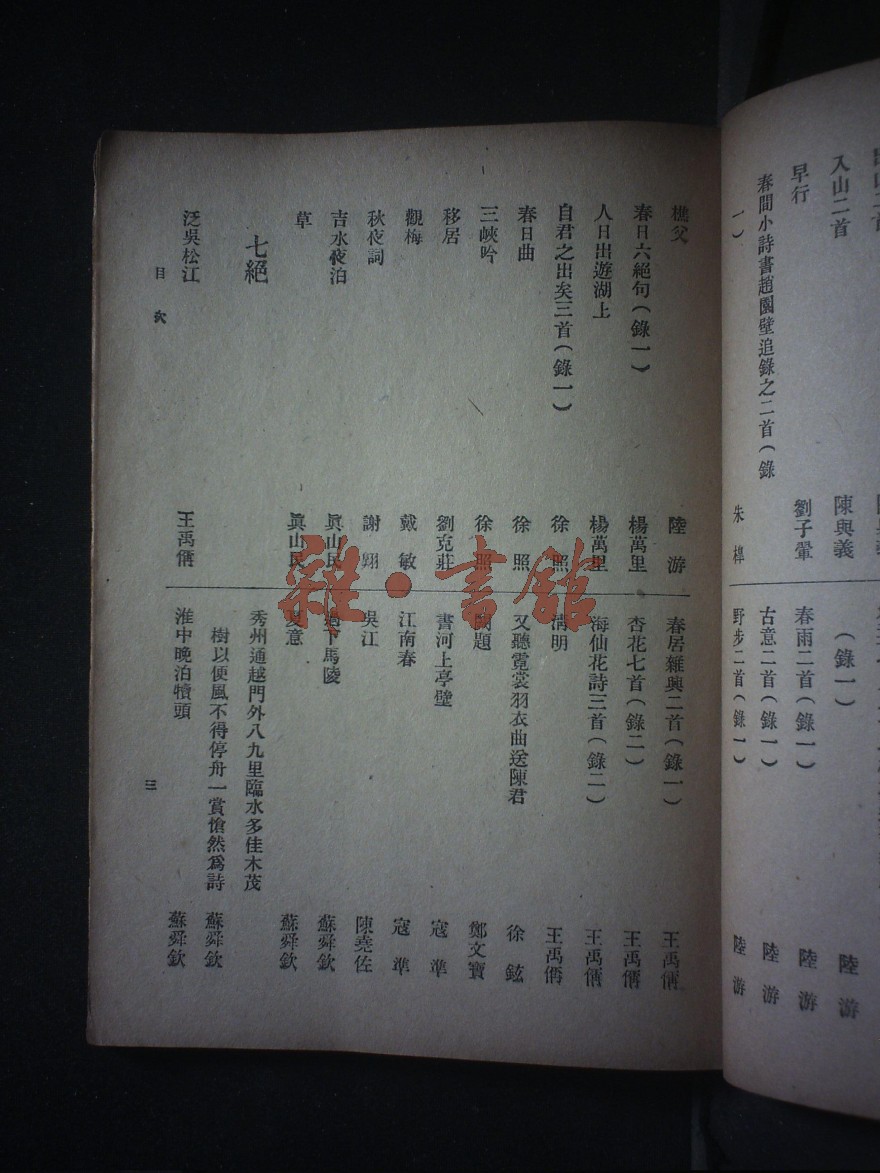 入山二首 陳與義
早行 劉子翬
春間小詩書趙園壁追錄之二首(錄
一) 朱槔
(錄一) 陸游
春雨二首(錄一) 陸游
古意二首(錄一) 陸游
野步二首(錄一) 陸游
樵父 陸游
春日六絕句(錄一) 楊萬里
人日出遊湖上 楊萬里
自君之出矣三首(錄一) 徐照
春日曲 徐照
三峽吟 徐照
移居 劉克莊
觀梅 戴敏
秋夜詞 謝翱
吉水夜泊 眞山民
草 眞山民
七絕
泛吳松江 王禹偁
春居雜興二首(錄一) 王禹偁
杏花七首(錄二) 王禹偁
海仙花詩三首(錄二) 王禹偁
清明 王禹偁
又聽霓裳羽衣曲送陳君 徐鉉
闕題 鄭文寶
書河上亭壁 寇準
江南春 寇準
吳江 陳堯佐
過下馬陵 蘇舜欽
夏意 蘇舜欽
秀州通越門外八九里臨水多佳木茂
樹以便風不得停舟一賞愴然爲詩 蘇舜欽
淮中晚泊犢頭 蘇舜欽
目次
三
雜·書館